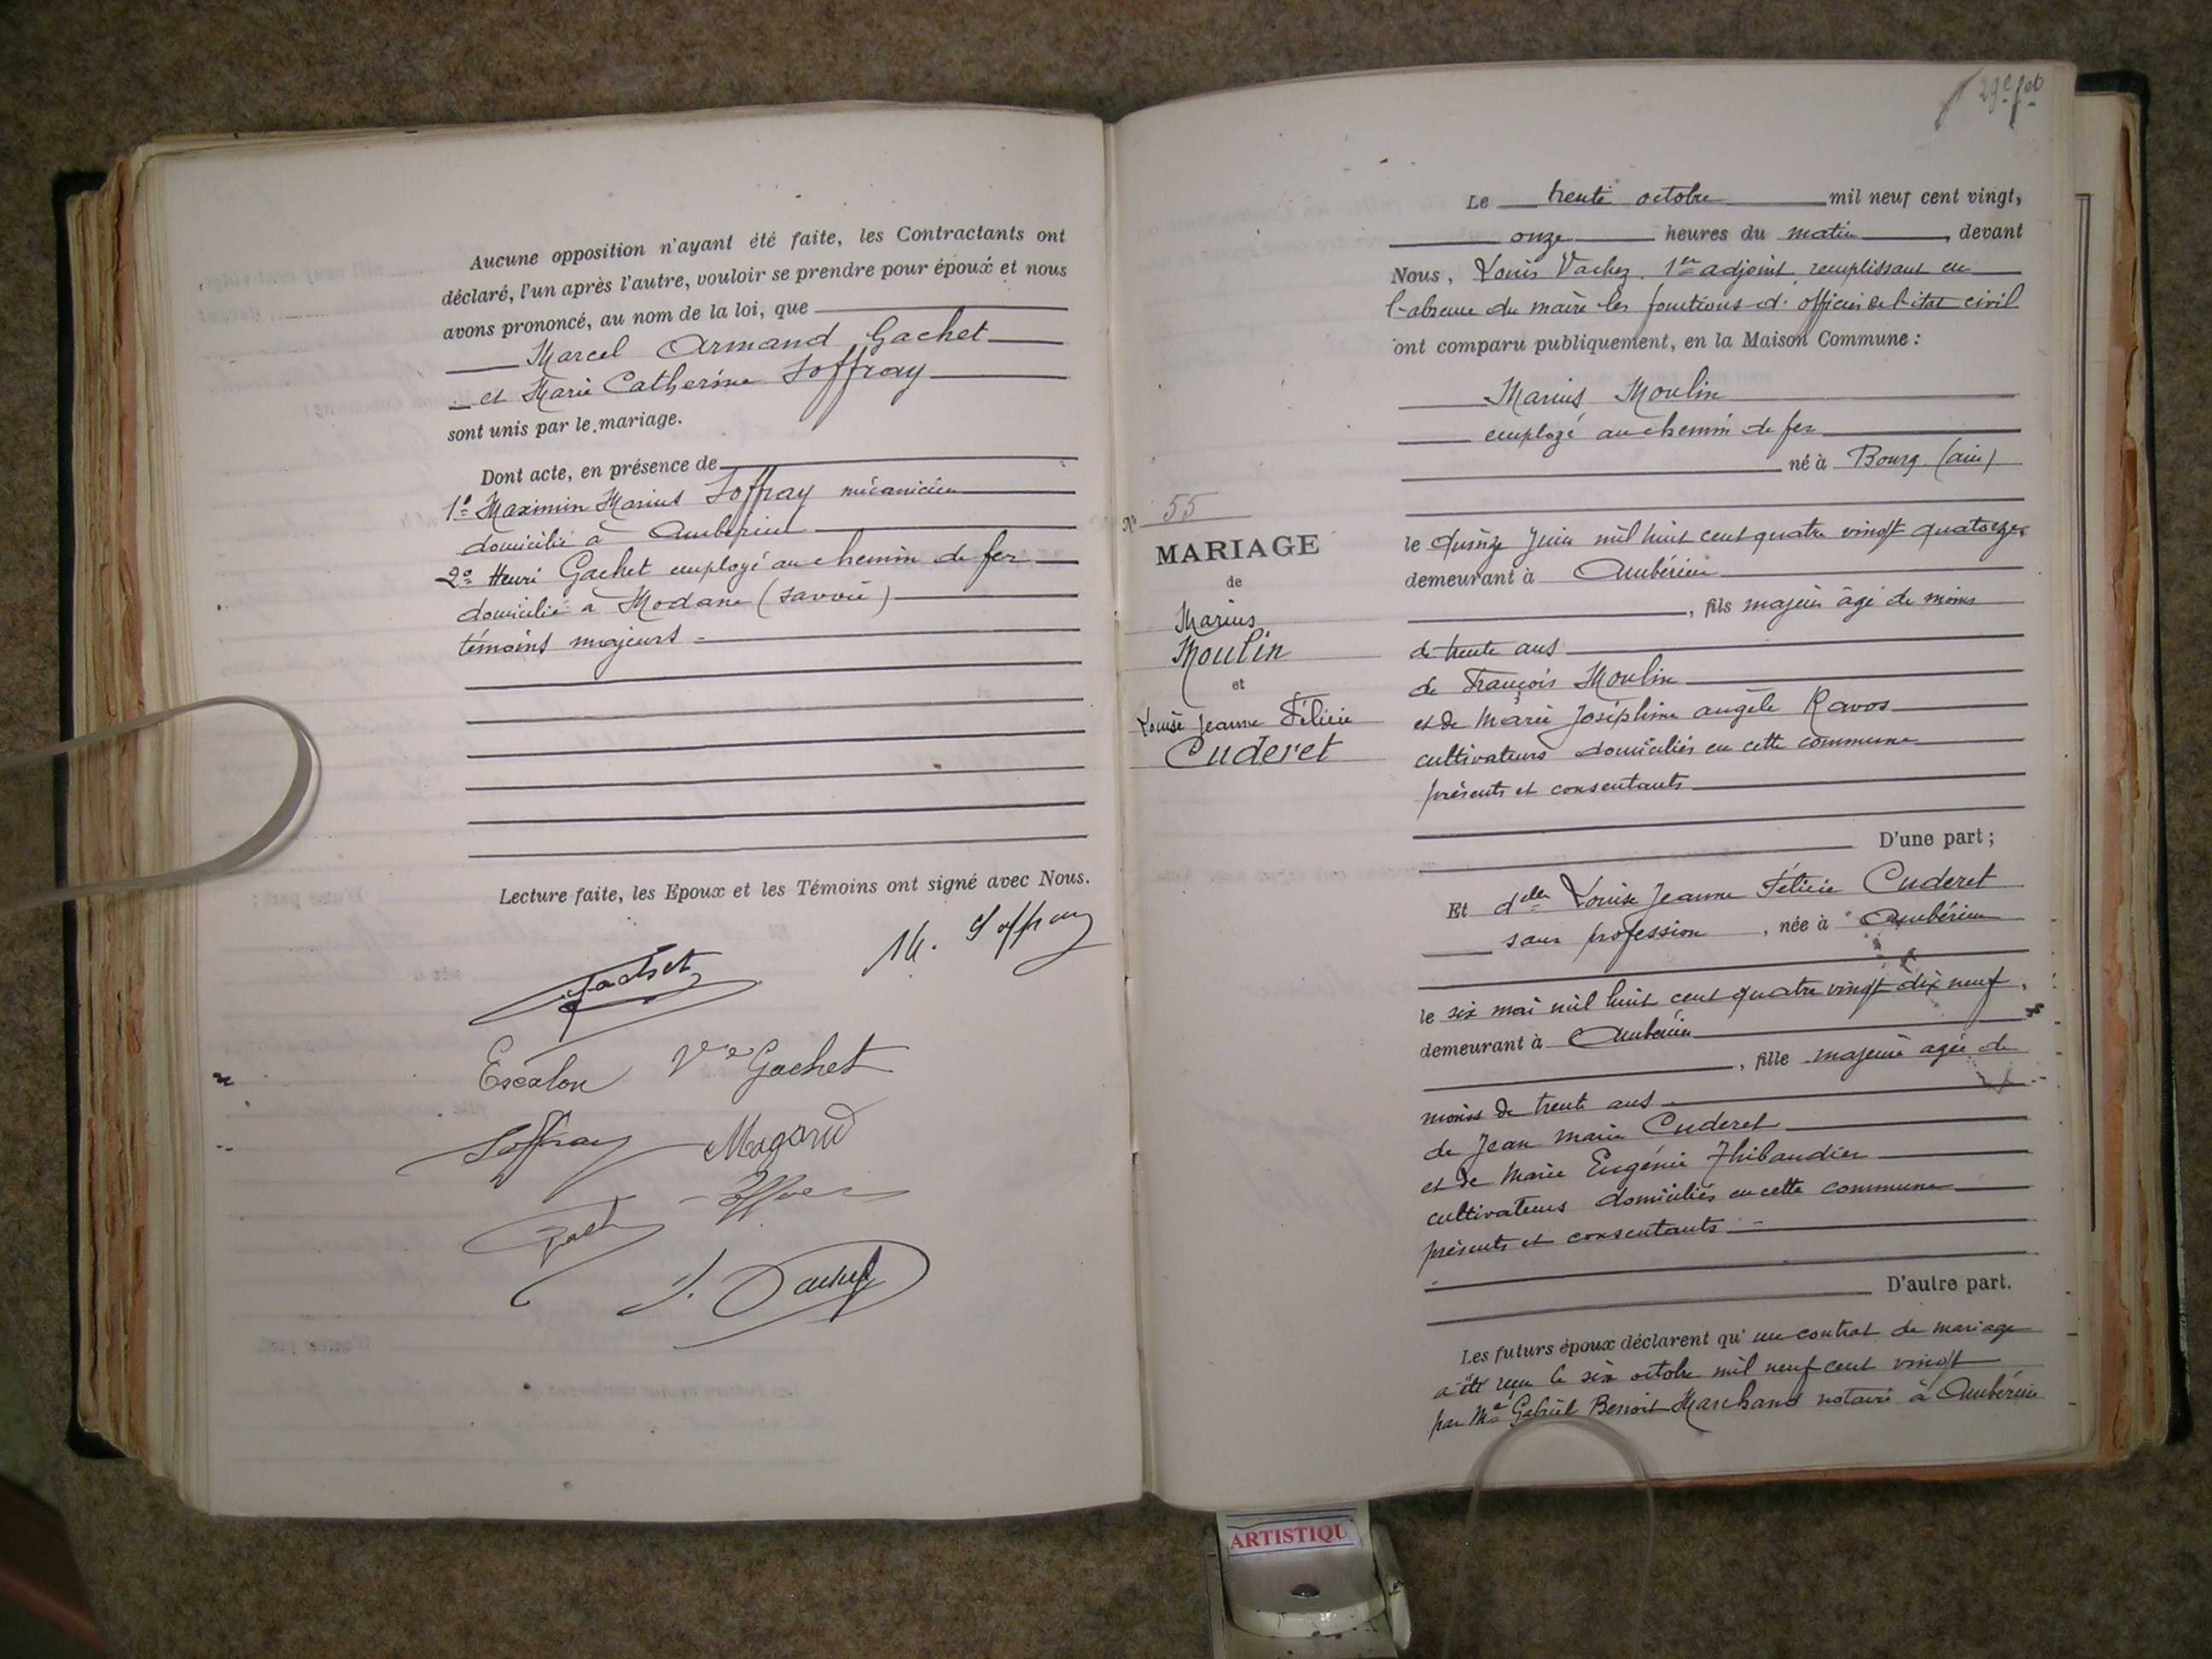 Aucune opposition n'ayant été faite, les Contractants ont
déclaré, l'un après l'autre, vouloir se prendre pour époux et nous
avons prononcé, au nom de la loi, que
Marcel Armand Gachet
et Marie Catherine Soffray
sont unis par le mariage.
Dont acte, en présence de
1º Maximin Marius Soffray mécanicien
domicilié à Ambérieu
2º Henri Gachet employé au chemin de fer
domicilié à Modane (Savoie)
témoins majeurs
Lecture faite, les Epoux et les Témoins ont signé avec Nous.
Gachet
M. Soffray
Escalon
Vve Gachet
Soffray
Magand
29e fet
Le trente octobre mil neuf cent vingt,
onze heures du matin, devant
Nous, Louis Vachez 1er adjoint remplissant en
l'absence du maire les fonctions d'officier de l'état civil
ont comparu publiquement, en la Maison Commune :
Marius Moulin
employé au chemin de fer
né à Bourg (ain)
le quinze juin mil huit cent quatre vingt quatorze
demeurant à Ambérieu
, fils majeur âgé de moins
de trente ans
de François Moulin
et de Marie Joséphine angèle Ravos
cultivateurs domiciliés en cette commune
présents et consentants
D'une part ;
Et delle Louise Jeanne Félicie Cuderet
sans profession, née à Ambérieu
le six mai mil huit cent quatre vingt dix neuf,
demeurant à Ambérieu
, fille majeure agée de
moins de trente ans
de Jean Marie Cuderet
et de Marie Eugénie Thibaudier
cultivateurs domiciliés en cette commune
présents et consentants
D'autre part.
Les futurs époux déclarent qu'un contrat de mariage
a été reçu le six octobre mil neuf cent vingt
par Me Gabriel Benoit Marchand notaire à Ambérieu
Nº 55
MARIAGE
de
Marius
Moulin
et
Louise Jeanne Félicie
Cuderet
ARTISTIQU